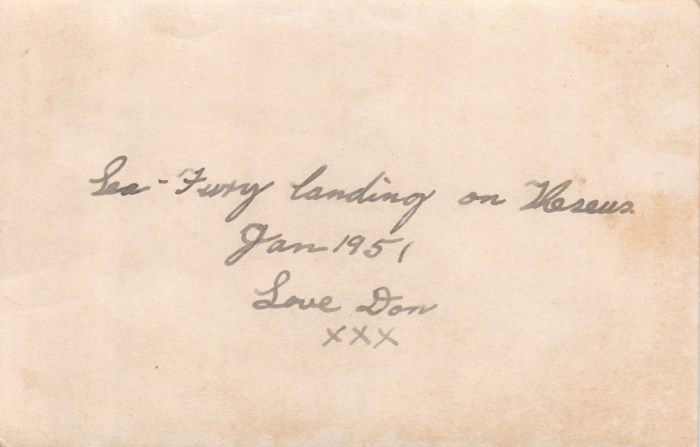 Sea-Fury landing on Theseus
Jan 1951
Love Don
xxx